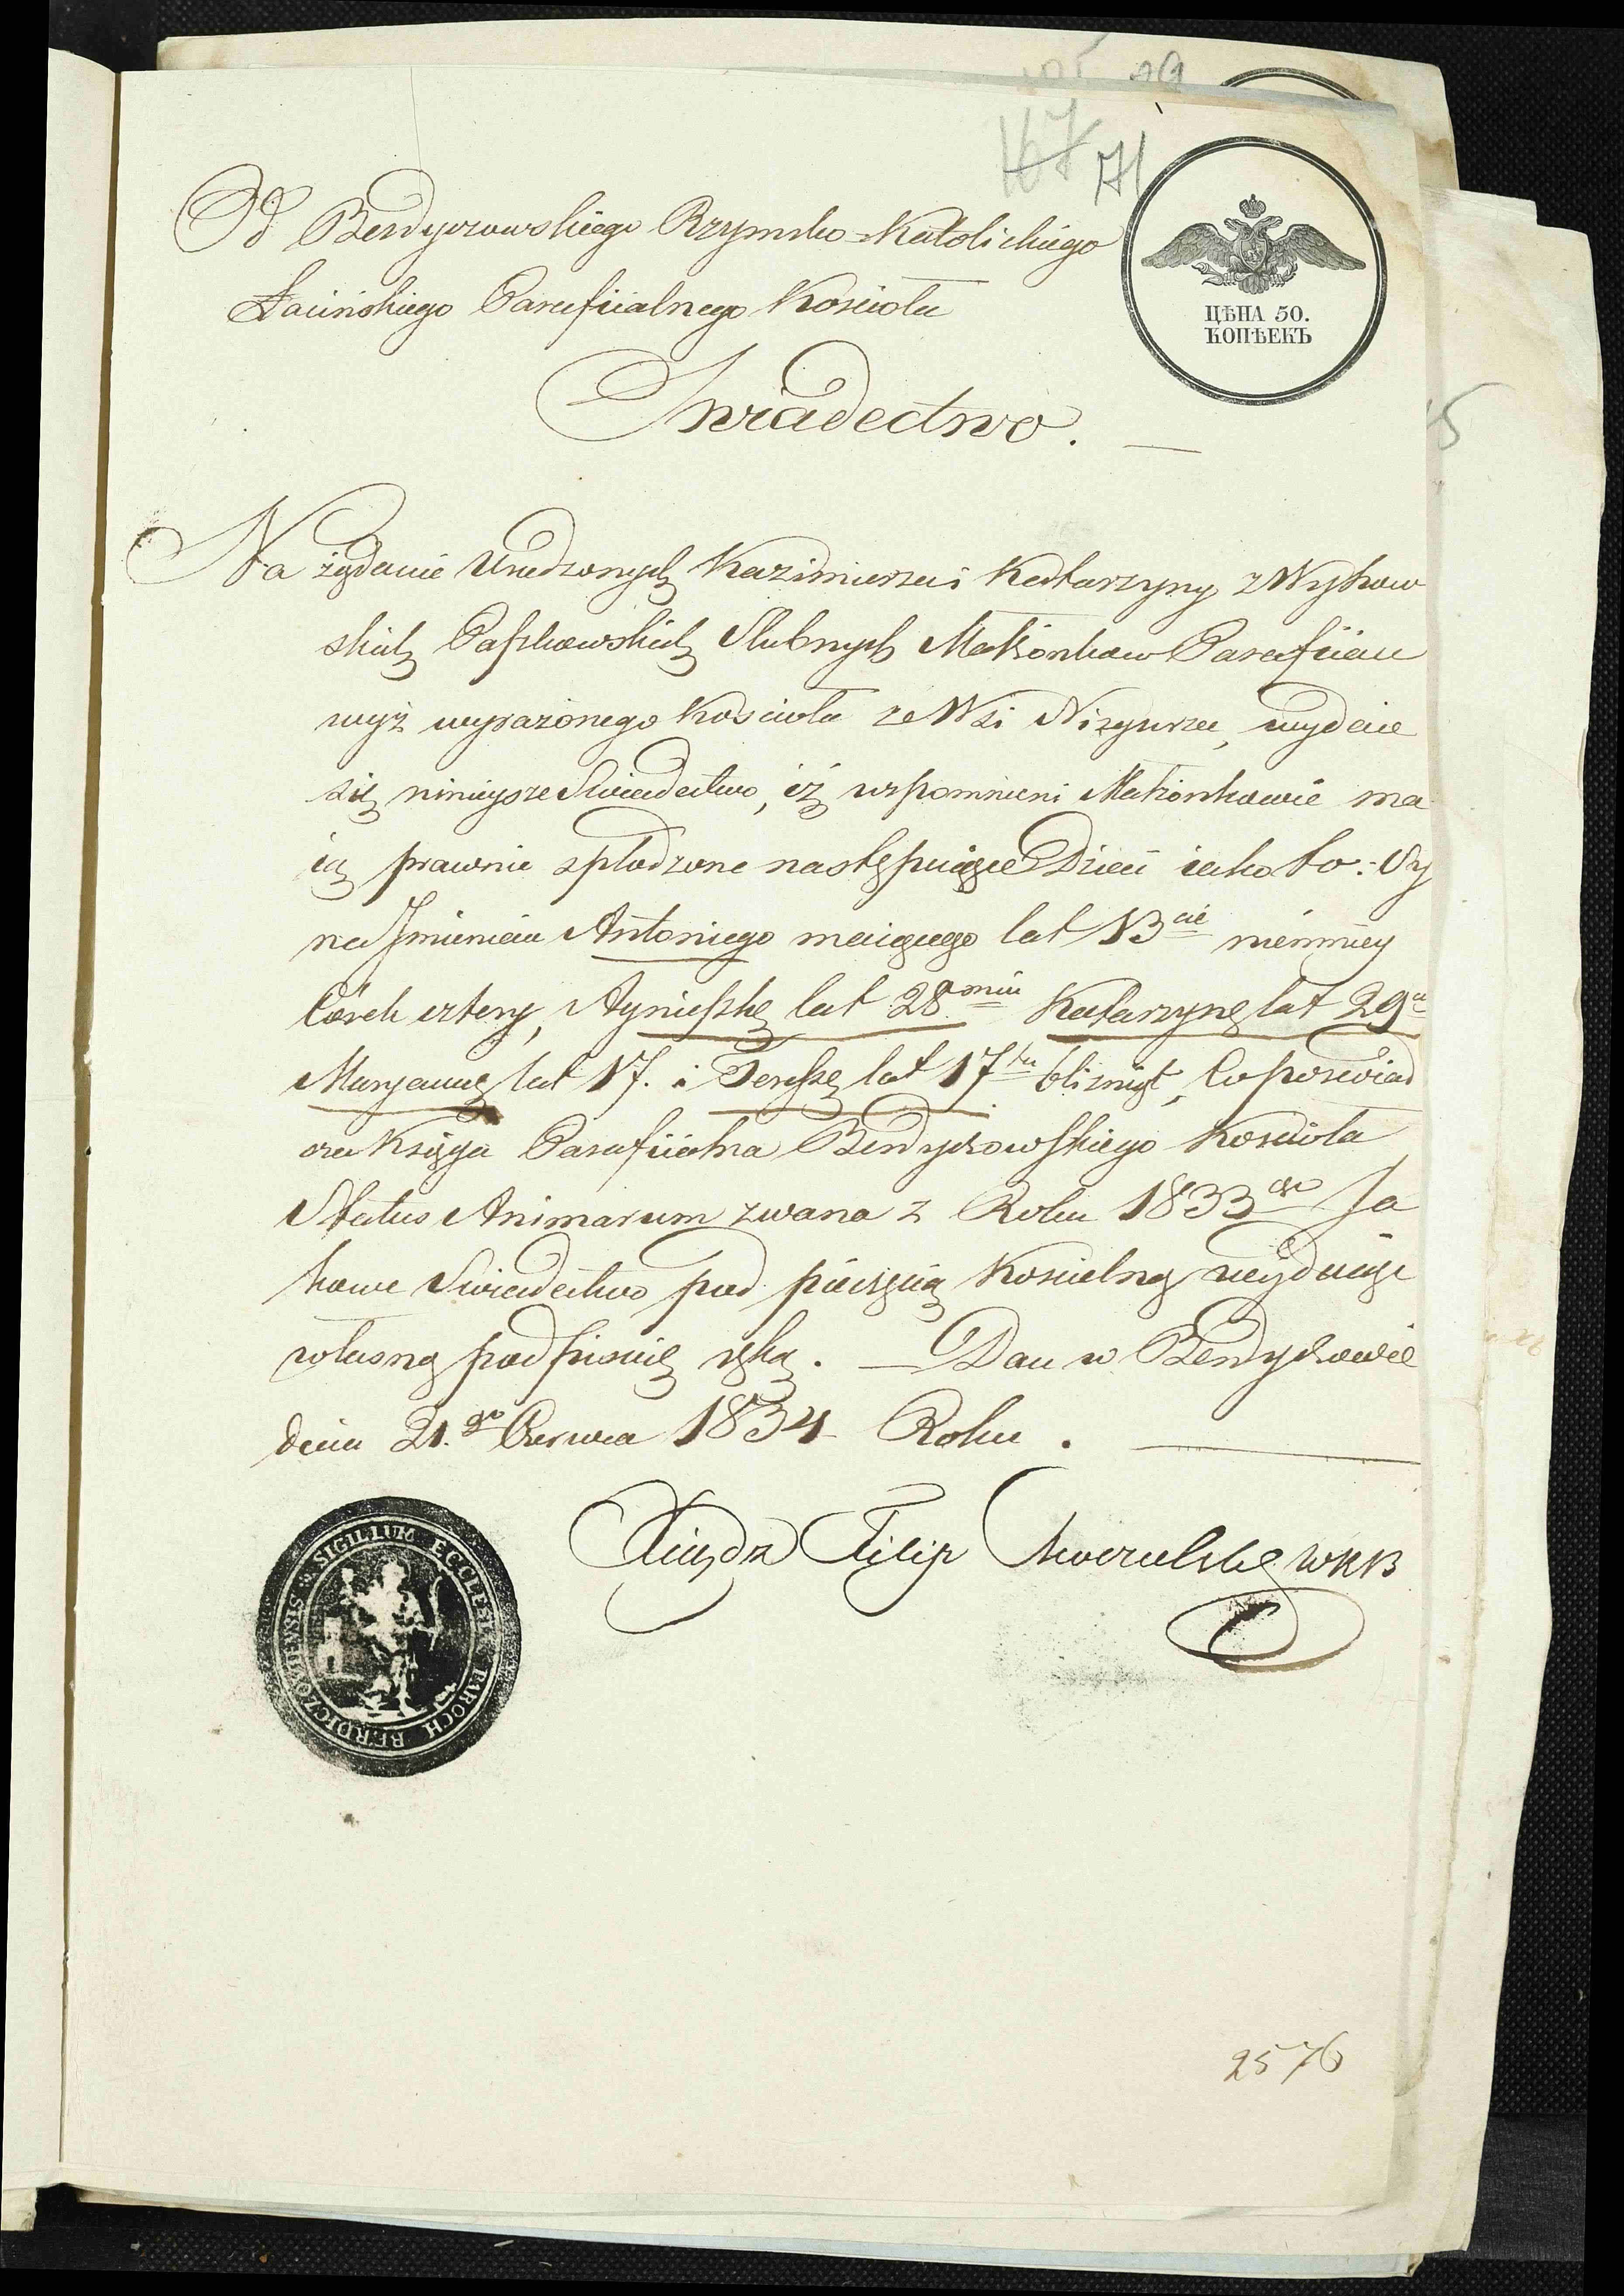 167 71
Od Berdyczowskiego Rzymsko-Katolickiego
Łacińskiego Parafiialnego Kościoła
ЦѢНА 50.
КОПѢЕКЪ
Swiadectwo.
Na żądanie Urodzonych Kazimierza i Katarzyny z Wyhow
skich Paszkowskich Slubnych Małżonkow Parafiian
wyż wyrażonego Kościoła ze Wsi Nizgurza, wydaie
się ninieysze Swiadectwo, iż wspomnieni Małżonkowie ma
ią prawnie spłodzone następuiące Dzieci iako to: Sy
na Jmieniem Antoniego maiącego lat 13cie niemniey
Córek cztery, Agnieszkę lat 28 Katarzynę lat 29
Maryannę lat 17. i Teressę lat 17tu bliźniąt, Co poświad
cza Księga Parafiialna Berdyczowskiego Kościoła
Status Animarum zwana z Roku 1833go Ja
kowe Swiadectwo pod pieczęcią Koscielną wydaiąc
własną podpisuię ręką. — Dan w Berdyczowie
dnia 21.go Czerwca 1834 Roku.
Xiądz Filip WKB
SIGILLUM ECCLESI PAROCH BERDICZOVIENSIS
2576